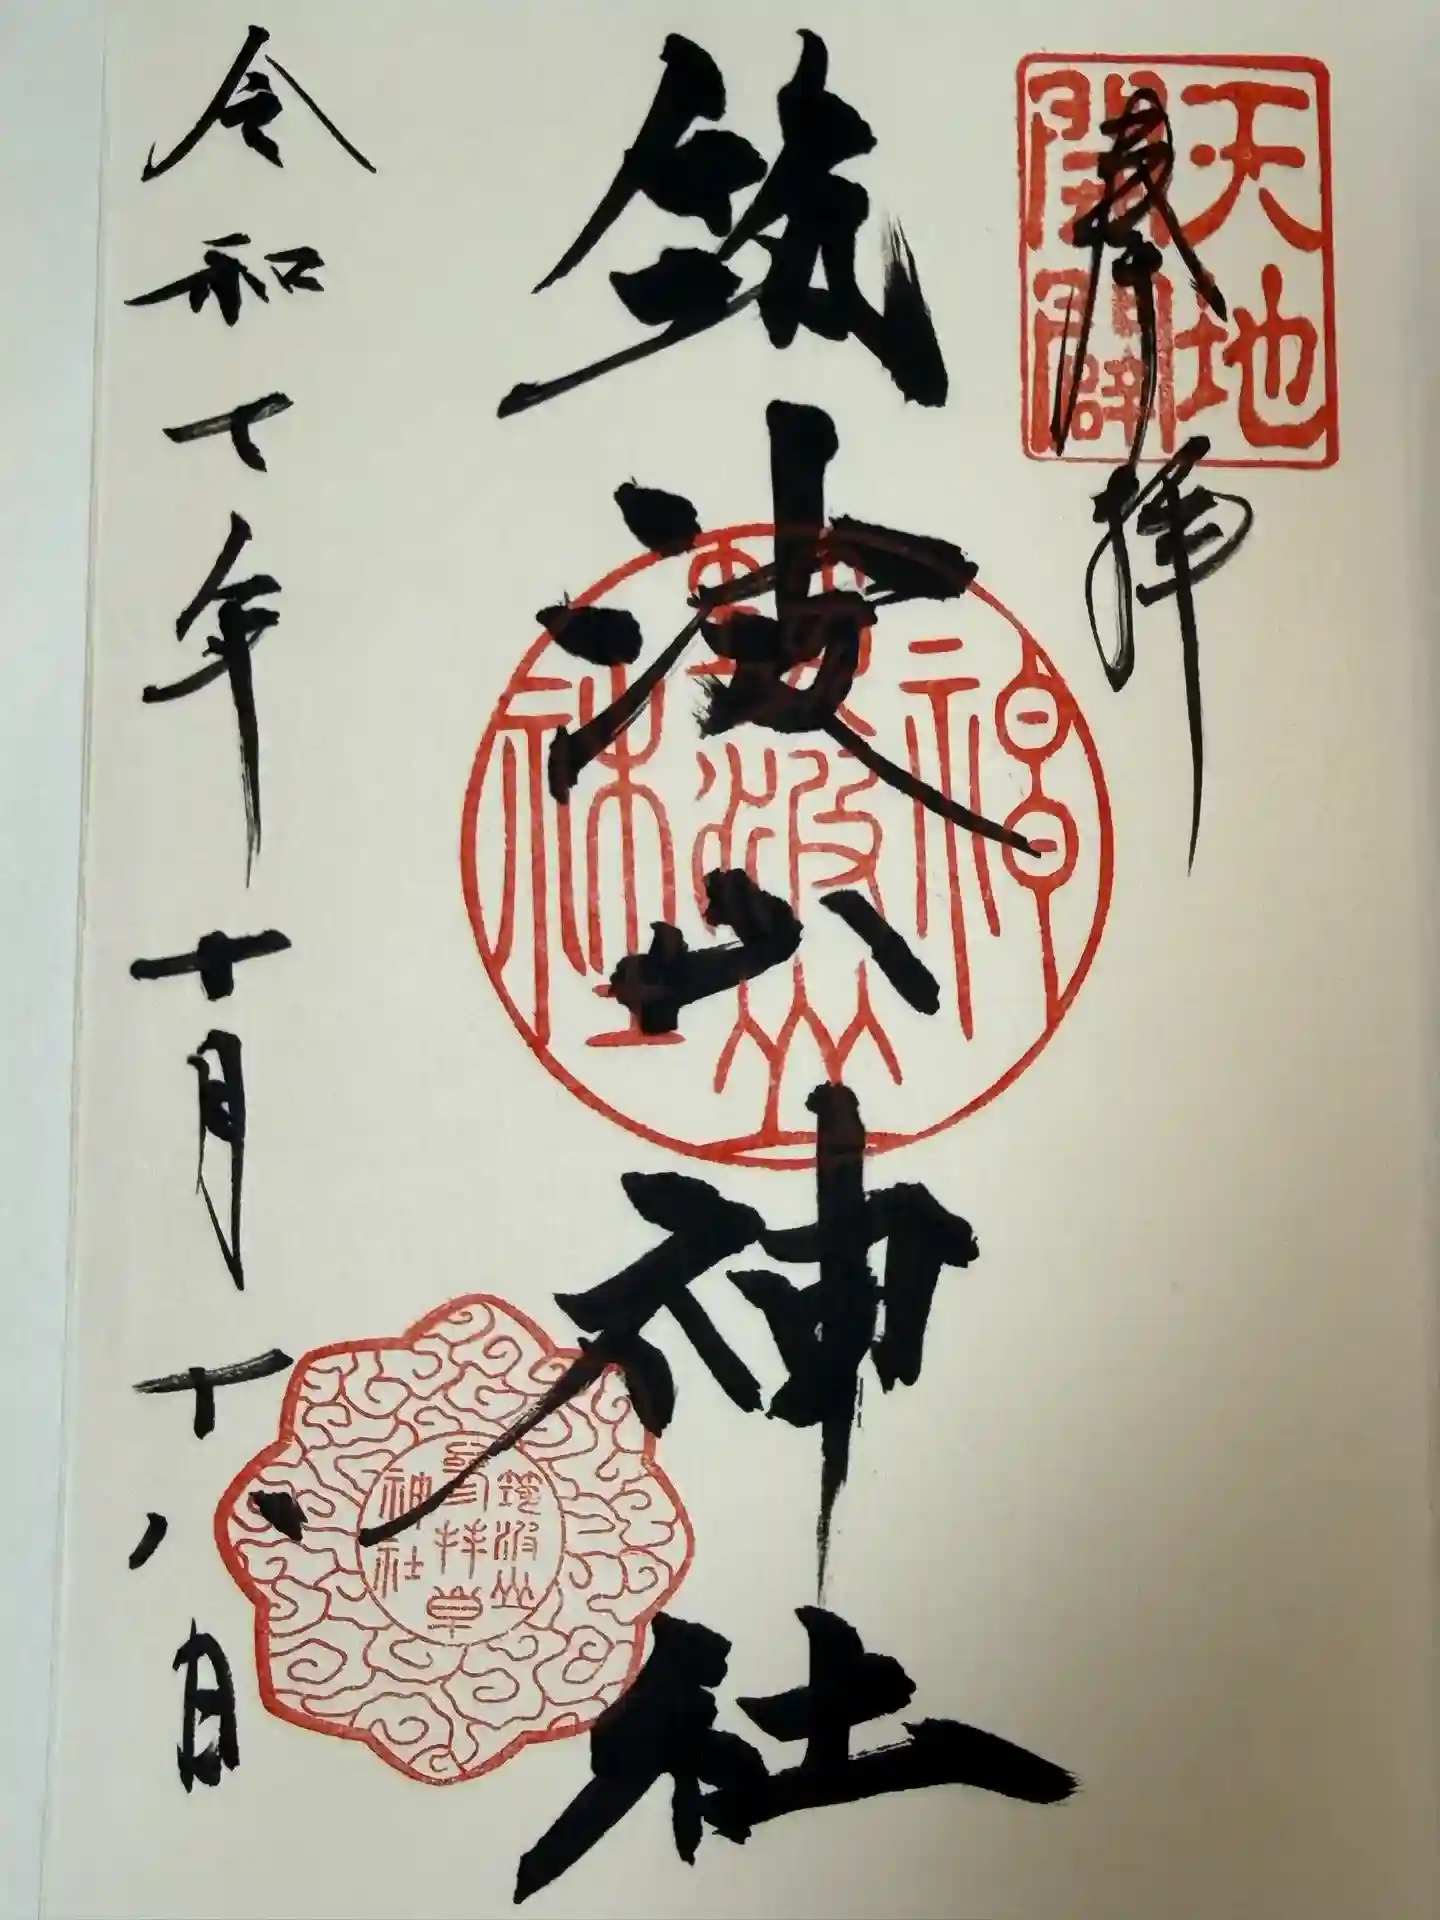 天地
開闢
奉拝
筑波山神社
神
筑波山
社
筑波山
参拝章
神社
令和七年十月十八日